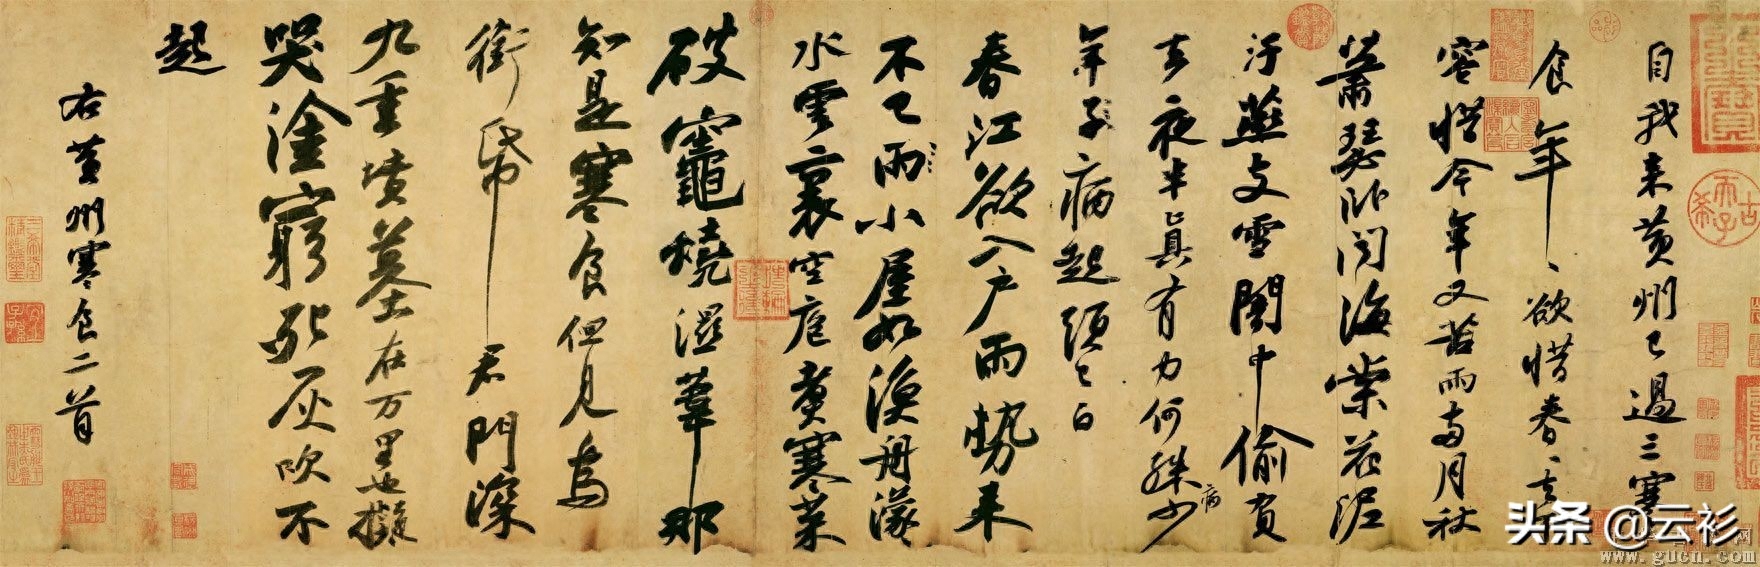 自我来黄州已過三寒
食年〻欲惜春〻去不
容惜今年又苦雨两月秋
蕭瑟卧闻海棠花泥
汙燕支雪闇中偷負
去夜半真有力何殊少
病
年子病起頭已白
春江欲入户雨势来
不已雨小屋如漁舟濛
水雲裏空庖煮寒菜
破竈燒湿葦那
知是寒食但見烏
銜帋君門深
九重墳墓在万里也擬
哭塗窮死灰吹不
起
右黄州寒食二首
古希天子
头条 @云衫
www.gucn.com